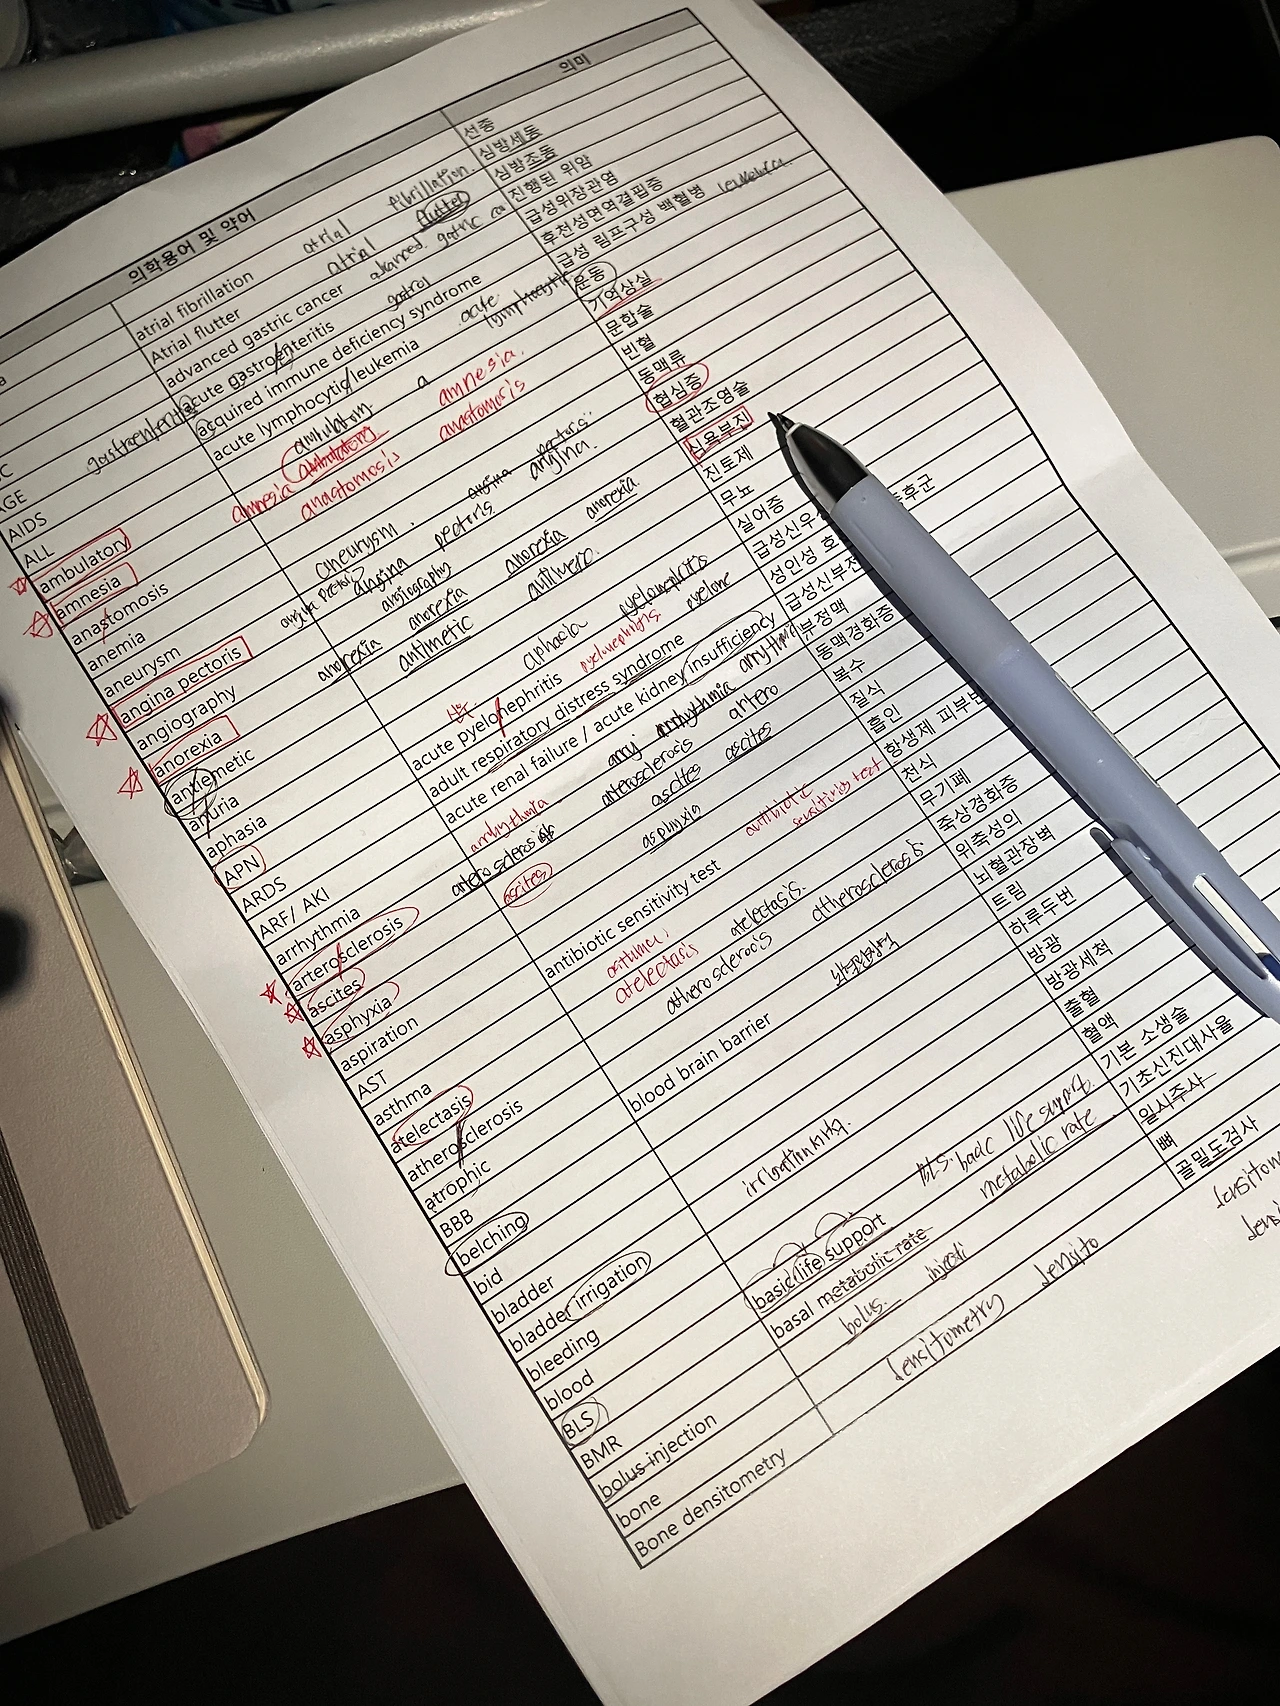 의학용어 및 약어 의미
선종
atrial fibrillation atrial fibrillation 심방세동
Atrial flutter atrial flutter 심방조동
advanced gastric cancer advanced gastric ca 진행된 위암
AGE acute gastroenteritis gastroenteritis 급성위장관염
AIDS acquired immune deficiency syndrome 후천성면역결핍증
ALL acute lymphocytic leukemia acute lymphocytic leukemia 급성 림프구성 백혈병
ambulatory ambulatory 운동
amnesia amnesia amnesia 기억상실
anastomosis anastomosis anastomosis 문합술
anemia 빈혈
aneurysm aneurysm 동맥류
angina pectoris angina pectoris angina pectoris angina 협심증
angiography angiography 혈관조영술
anorexia anorexia anorexia anorexia anorexia 식욕부진
antiemetic 진토제
anuria 무뇨
aphasia aphasia 실어증
APN acute pyelonephritis pyelonephritis pyelonephritis 급성신우
ARDS adult respiratory distress syndrome 성인성 호 후군
ARF/ AKI acute renal failure / acute kidney insufficiency 급성신부전
arrhythmia arrhythmia arrhythmia 부정맥
arterosclerosis arterosclerosis arterosclerosis artero 동맥경화증
ascites ascites ascites ascites 복수
asphyxia asphyxia 질식
aspiration 흡인
AST antibiotic sensitivity test antibiotic sensitivity test 항생제 피부반
asthma asthma 천식
atelectasis atelectasis atelectasis 무기폐
atherosclerosis atherosclerosis atherosclerosis 죽상경화증
atrophic 위축성의
BBB blood brain barrier 뇌혈관장벽
belching 트림
bid 하루두번
bladder 방광
bladder irrigation irrigation 방광세척
bleeding 출혈
blood 혈액
BLS basic life support BLS. basic life support 기본 소생술
BMR basal metabolic rate metabolic rate 기초신진대사율
bolus injection bolus 일시주사
bone 뼈
Bone densitometry densitometry densito 골밀도검사